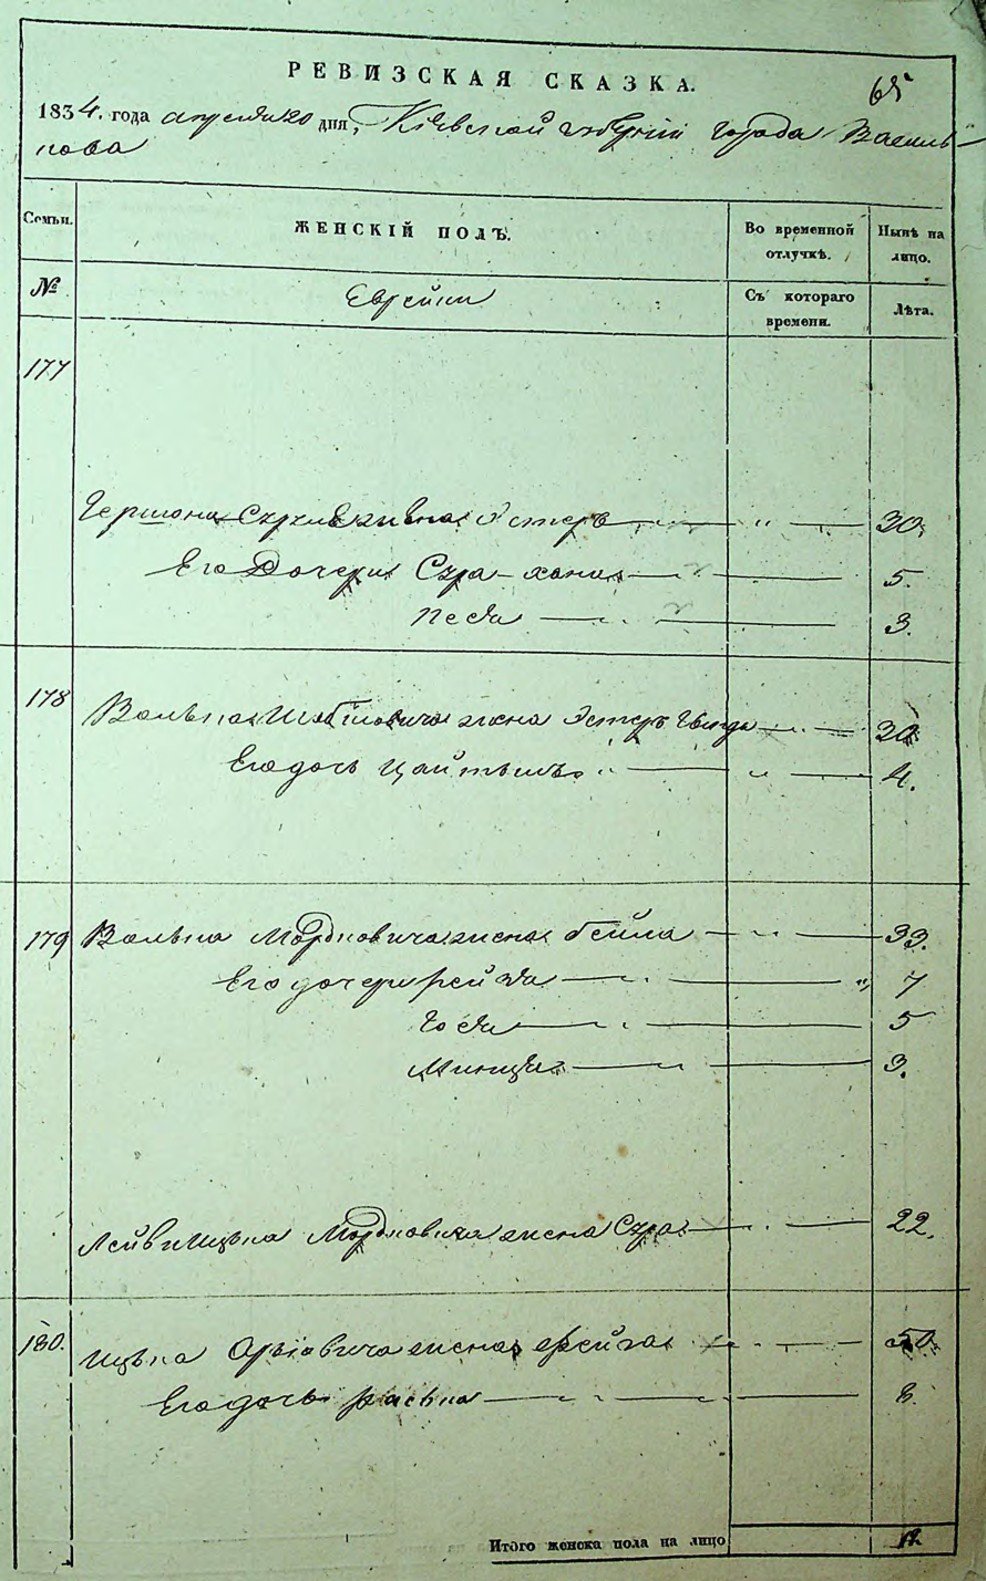 РЕВИЗСКАЯ СКАЗКА.
65
1834. года апреля 20 дня, Кіевской губерніи города Василь-
кова
Семьи. ЖЕНСКІЙ ПОЛЪ. Во временной отлучкѣ. Нынѣ на лицо.
№ Еврейки Съ котораго времени. Лѣта.
177
Гершона жена Эстеръ 30.
Его Дочери Сура-хана 5.
Песя 3.
178 Волька жена Эстеръ 30
Его дочь 4.
179 Волька Мордковича жена бейла 33.
Его дочери рейзя 7
Гося 5
3.
Лейви Ицька Мордковича жена Сура 22.
180. Ицька Орьіовича жена фейга 50.
Его дочь раська 8.
Итого женска пола на лицо 12.